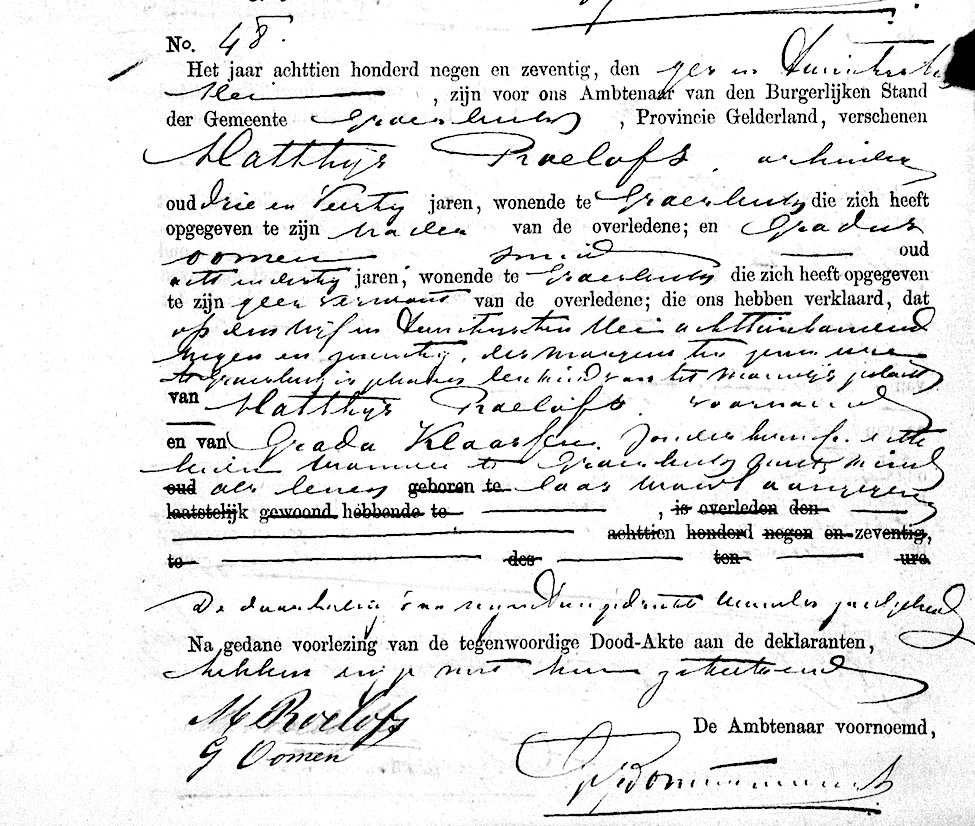 No. 48.
Het jaar achttien honderd negen en zeventig, den zes en twintigsten
Mei , zijn voor ons Ambtenaar van den Burgerlijken Stand
der Gemeente Groesbeek , Provincie Gelderland, verschenen
Matthijs Roelofs. arbeider
oud drie en veertig jaren, wonende te Groesbeek die zich heeft
opgegeven te zijn vader van de overledene; en Gradus
Oomen smid oud
acht en dertig jaren, wonende te Groesbeek die zich heeft opgegeven
te zijn geen verwant van de overledene; die ons hebben verklaard, dat
op den vijf en twintigsten Mei achttienhonderd
negen en zeventig, des morgens ten ure
te Groesbeek is een kind van het mannelijk geslacht
van Matthijs Roelofs. voornoemd
en van Grada Klaassen. zonder beroep. echte
lieden wonende te Groesbeek
oud als levenloos geboren te
laatstelijk gewoond hebbende te , is overleden den
achttien honderd negen en zeventig,
te des ten ure
De doorhaling van gedrukte woorden goedgekeurd
Na gedane voorlezing van de tegenwoordige Dood-Akte aan de deklaranten,
hebben zij met ons geteekend
M Roelofs
G Oomen
De Ambtenaar voornoemd,